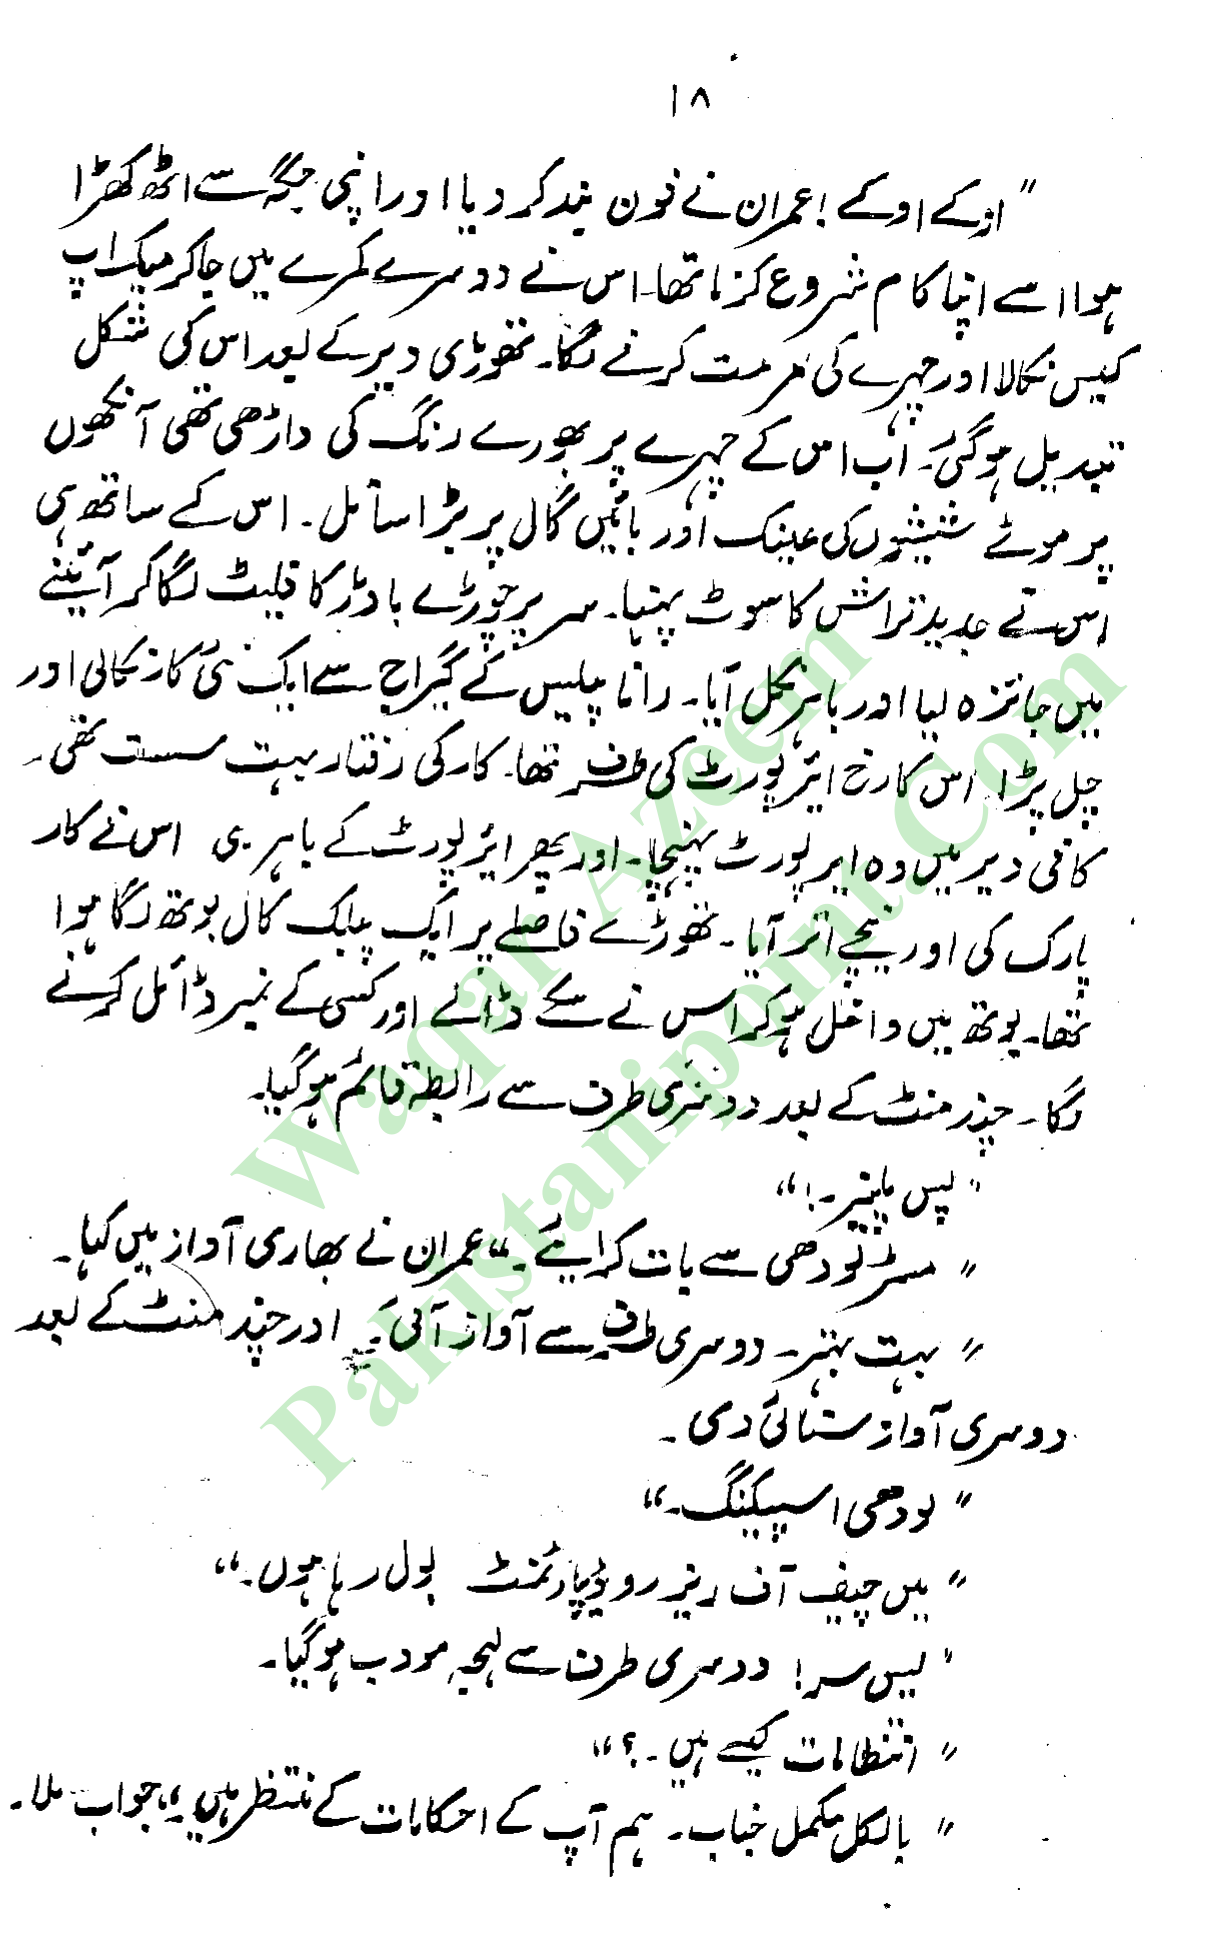 ۱۸
"اوکے اوکے! عمران نے فون بند کر دیا اور اپنی جگہ سے اٹھ کھڑا
ہوا اسے اپنا کام شروع کرنا تھا۔ اس نے دوسرے کمرے میں جا کر میک اپ
کیس نکالا اور چہرے کی مرمت کرنے لگا۔ تھوڑی دیر کے بعد اس کی شکل
تبدیل ہو گئی۔ اب اس کے چہرے پر بھورے رنگ کی داڑھی تھی آنکھوں
پر موٹے شیشوں کی عینک اور بائیں گال پر بڑا سا تل۔ اس کے ساتھ ہی
اس نے جدید تراش کا سوٹ پہنا۔ سر پر چوڑے باڈر کا فلیٹ لگا کر آئینے
میں جائزہ لیا اور باہر نکل آیا۔ رانا پیلیس کے گیراج سے ایک نئی کار نکالی اور
چل پڑا۔ اس کا رخ ائیر پورٹ کی طرف تھا۔ کار کی رفتار بہت سست تھی۔
کافی دیر میں وہ ایر پورٹ پہنچا۔ اور پھر ائیر پورٹ کے باہر ہی اس نے کار
پارک کی اور نیچے اتر آیا۔ تھوڑے فاصلے پر ایک پبلک کال بوتھ لگا ہوا
تھا۔ بوتھ میں داخل ہو کر اس نے سکے ڈالے اور کسی کے نمبر ڈائل کرنے
لگا۔ چند منٹ کے بعد دوسری طرف سے رابطہ قائم ہو گیا۔
"یس پلیز۔!"
"مسٹر لودھی سے بات کرائیے۔" عمران نے بھاری آواز میں کہا۔
"بہت بہتر۔ دوسری طرف سے آواز آئی۔ اور چند منٹ کے بعد
دوسری آواز سنائی دی۔
"لودھی اسپیکنگ۔"
"میں چیف آف ریزرو ڈیپارٹمنٹ بول رہا ہوں۔"
"یس سر! دوسری طرف سے لہجہ مودب ہو گیا۔
"انتظامات کیسے ہیں۔؟"
"بالکل مکمل جناب۔ ہم آپ کے احکامات کے منتظر ہیں۔" جواب ملا۔
Waqar Azeem
Pakistanipoint.Com